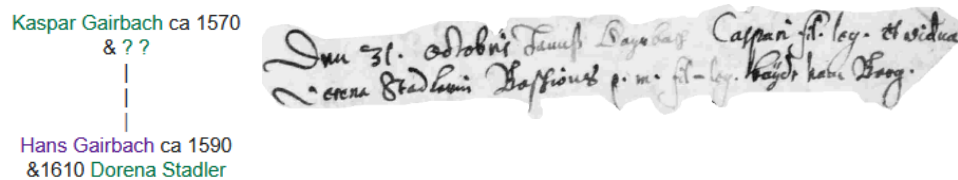 Kaspar Gairbach ca 1570
& ? ?
|
|
|
|
Hans Gairbach ca 1590
&1610 Dorena Stadler
Den 31. octobris Hannß Gayrbach Caspari fil. leg. et vidua
Verena Stadlerin p. m. fil. leg. Berg.